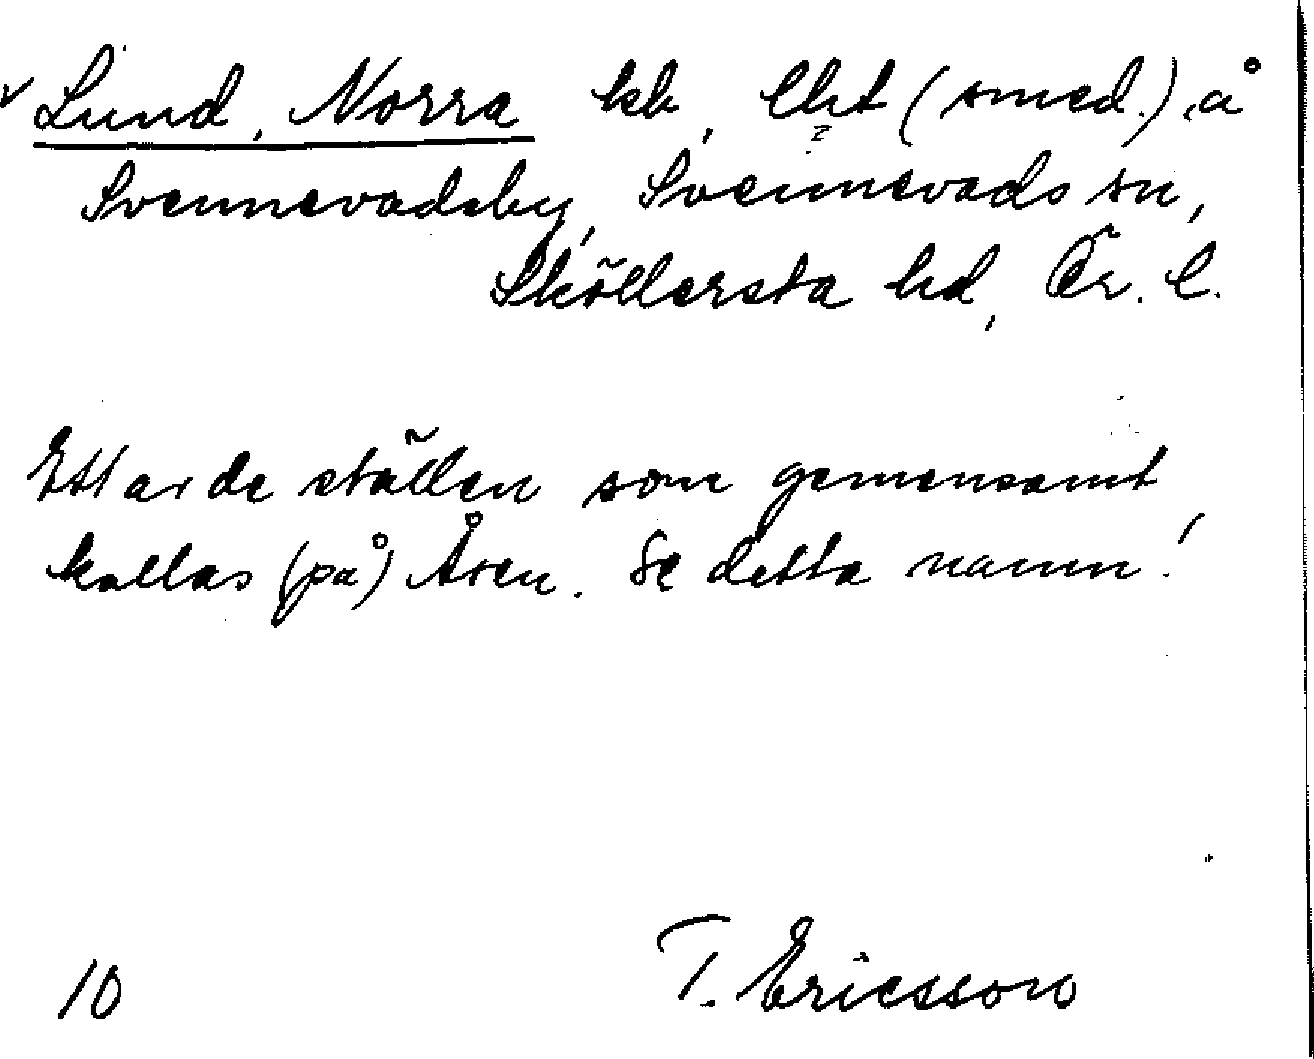 Lund, Norra kb, lht (smed.) å
Svennevadsby, Svennevads sn,
Sköllersta hd, Ör. l.
Ett av de ställen som gemensamt
kallas (på) Åsen. Se detta namn!
10 T. Ericsson